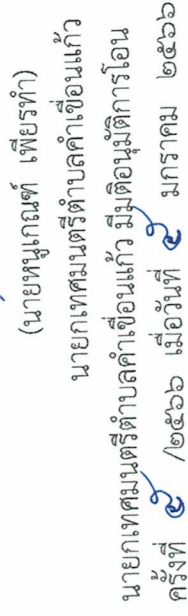 (นายหนูเกณฑ์ เพียรทำ)
นายกเทศมนตรีตำบลคำเขื่อนแก้ว
นายกเทศมนตรีตำบลคำเขื่อนแก้ว มีมติอนุมัติการโอน
ครั้งที่ ๕ /๒๕๖๖ เมื่อวันที่ ๕ มกราคม ๒๕๖๖